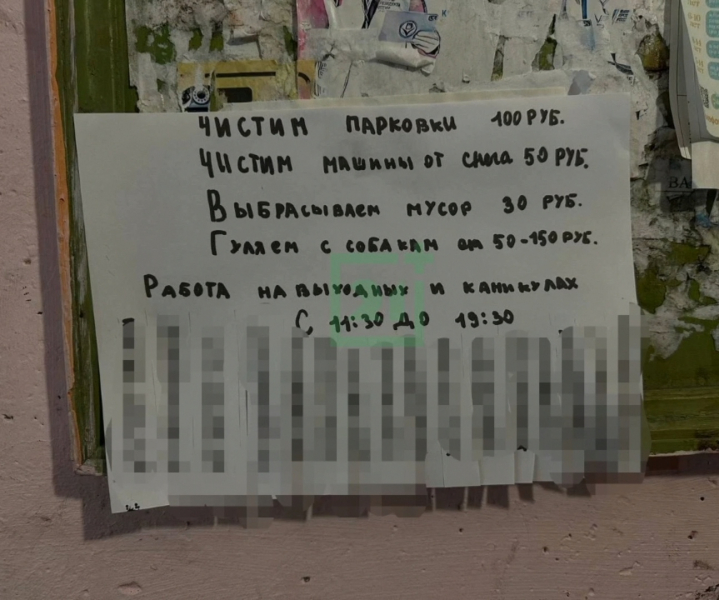 ЧИСТИМ ПАРКОВКИ 100 РУБ.
ЧИСТИМ МАШИНЫ ОТ СНЕГА 50 РУБ.
ВЫБРАСЫВАЕМ МУСОР 30 РУБ.
ГУЛЯЕМ С СОБАКАМ ОТ 50-150 РУБ.
РАБОТА НА ВЫХОДНЫХ И КАНИКУЛАХ
С 11:30 ДО 19:30